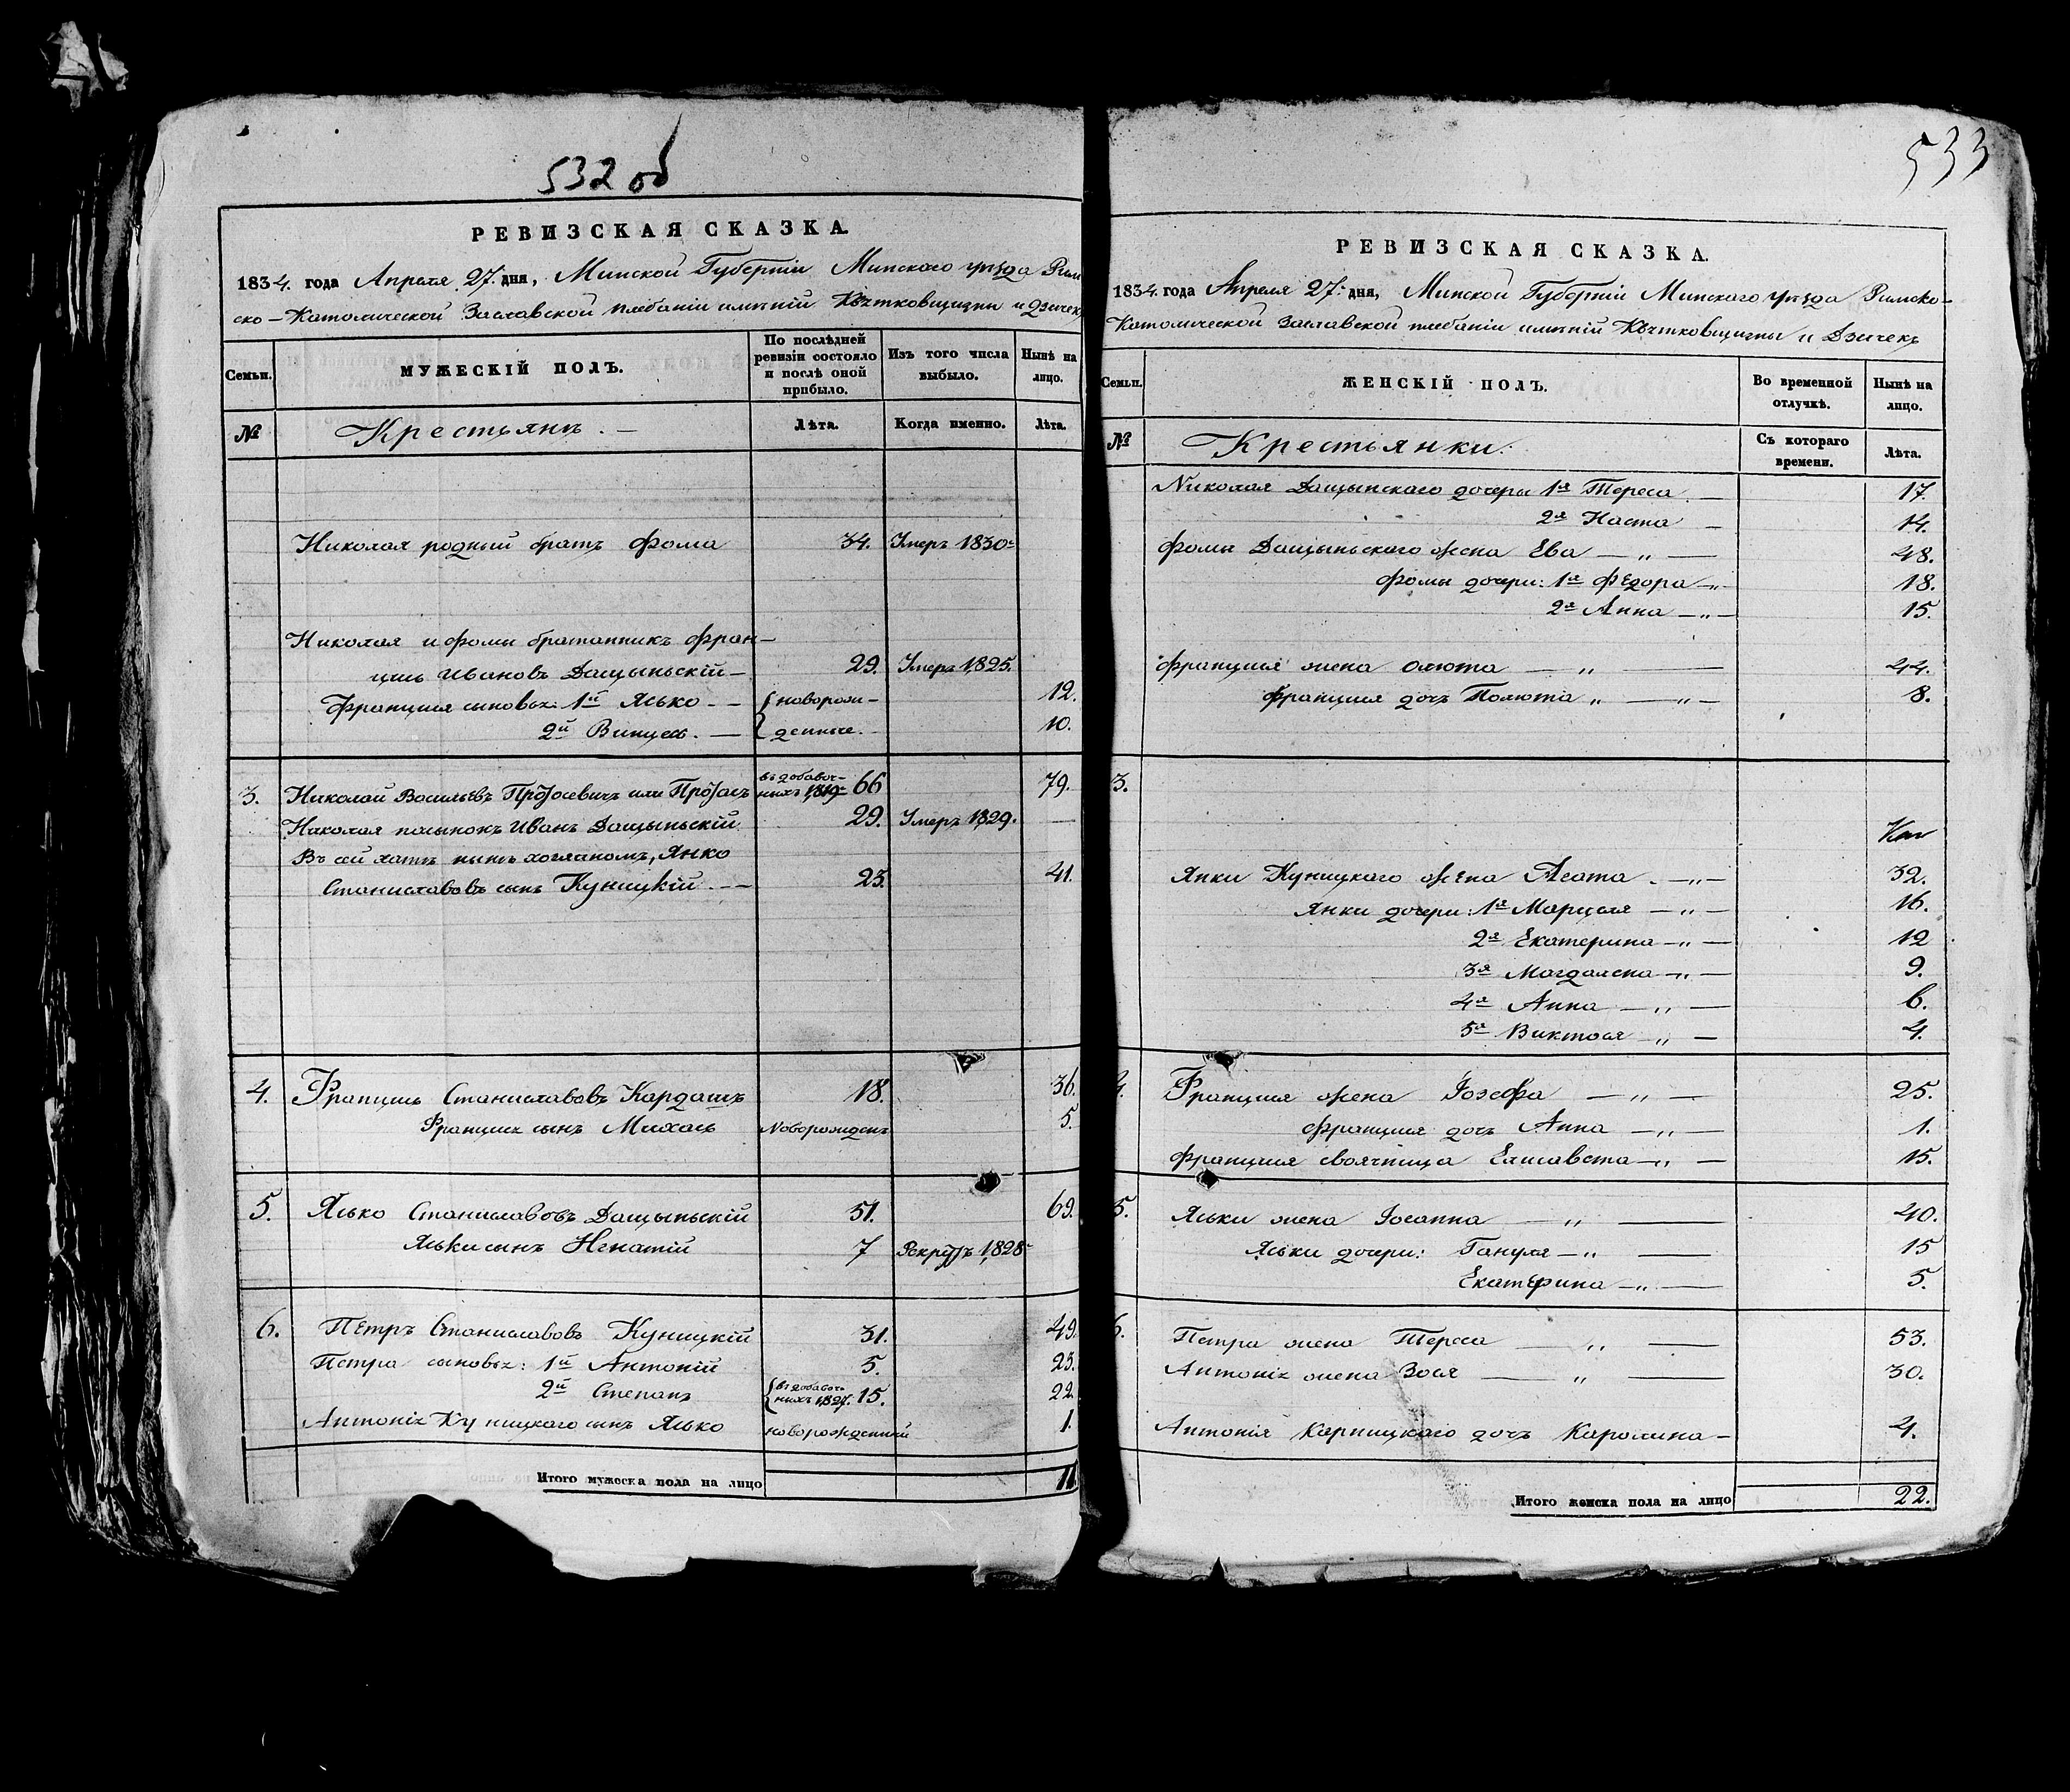 532 об
РЕВИЗСКАЯ СКАЗКА.
1834. года Апреля 27. дня, Минской Губерніи Минскаго уѣзда Рим
ско-Католической Заславской плебаніи имѣній Кѣчтковщизны и Дзичекъ
Семьи.
МУЖЕСКІЙ ПОЛЪ.
По послѣдней ревизіи состояло и послѣ оной прибыло.
Изъ того числа выбыло.
Нынѣ на лицо.
№ Крестьянъ. Лѣта. Когда именно. Лѣта.
Николая родный братъ Фома 34. Умеръ 1830г
Николая и Фомы братанникъ Фран-
цишь Ивановъ Дащыньскій 29. Умеръ 1825.
Францишя сыновья: 1й Яська {новорож- 12.
2й Винцесь. {денные. 10.
3. Николай Васильевъ Протосевичъ или Протасъ въ добавоч-ныхъ 1819г 66 79.
Николая пасынокъ Иванъ Дащыньскій 29. Умеръ 1829. —
Въ сей хатѣ нынѣ хозяиномъ, Янко
Станиславовъ сынъ Куницкій. 23. 41.
4. Францишь Станиславовъ Кардашъ 18. 36.
Францишя сынъ Михась Новорожденъ 5.
5. Ясько Станиславовъ Дащыньскій 51. 69.
Яськи сынъ Игнатій 7 Рекрутъ 1828г
6. Петръ Станиславовъ Куницкій 31. 49.
Петра сыновья: 1й Антоній 5. 23.
2й Степанъ {въ добавоч-ныхъ 1827. 15. 22
Антонія Куницкаго сынъ Ясько новорожденный 1.
Итого мужеска пола на лицо 11
533
РЕВИЗСКАЯ СКАЗКА.
1834. года Апреля 27. дня, Минской Губерніи Минскаго уѣзда Римско-
Католической Заславской плебаніи имѣній Кѣчтковщизны и Дзичекъ
Семьи.
ЖЕНСКІЙ ПОЛЪ.
Во временной отлучкѣ.
Нынѣ на лицо.
№ Крестьянки. Съ котораго времени. Лѣта.
Николая Дащынскаго дочери 1я Тереса. — 17.
2я Наста — 14.
Фомы Дащыньскаго жена Ева — „ — 48.
Фомы дочери: 1я Федора — „ 18.
2я Анна — „ — 15.
Францишя жена Олюта — „ — 44.
Францишя дочь Полюта „ — „ — 8.
3.
Янки Куницкаго жена Агата. — „ — 32.
Янки дочери: 1я Марцеля — „ — 16.
2я Екатерина — „ — 12
3я Магдалена — „ — 9.
4я Анна — „ — 6.
5я Виктося — „ — 4.
4. Францишя жена Іозефа — „ — 25.
Францишя дочь Анна — „ — 1.
Францишя своячница Елисавета — „ — 15.
5. Яськи жена Іоанна — „ — 40.
Яськи дочери: Гануля — „ — 15
Екатерина — „ — 5.
6. Петра жена Тереса — „ — 53.
Антонія жена Зося — „ — 30.
Антонія Карницкаго дочь Каролина — 4.
Итого женска пола на лицо 22.